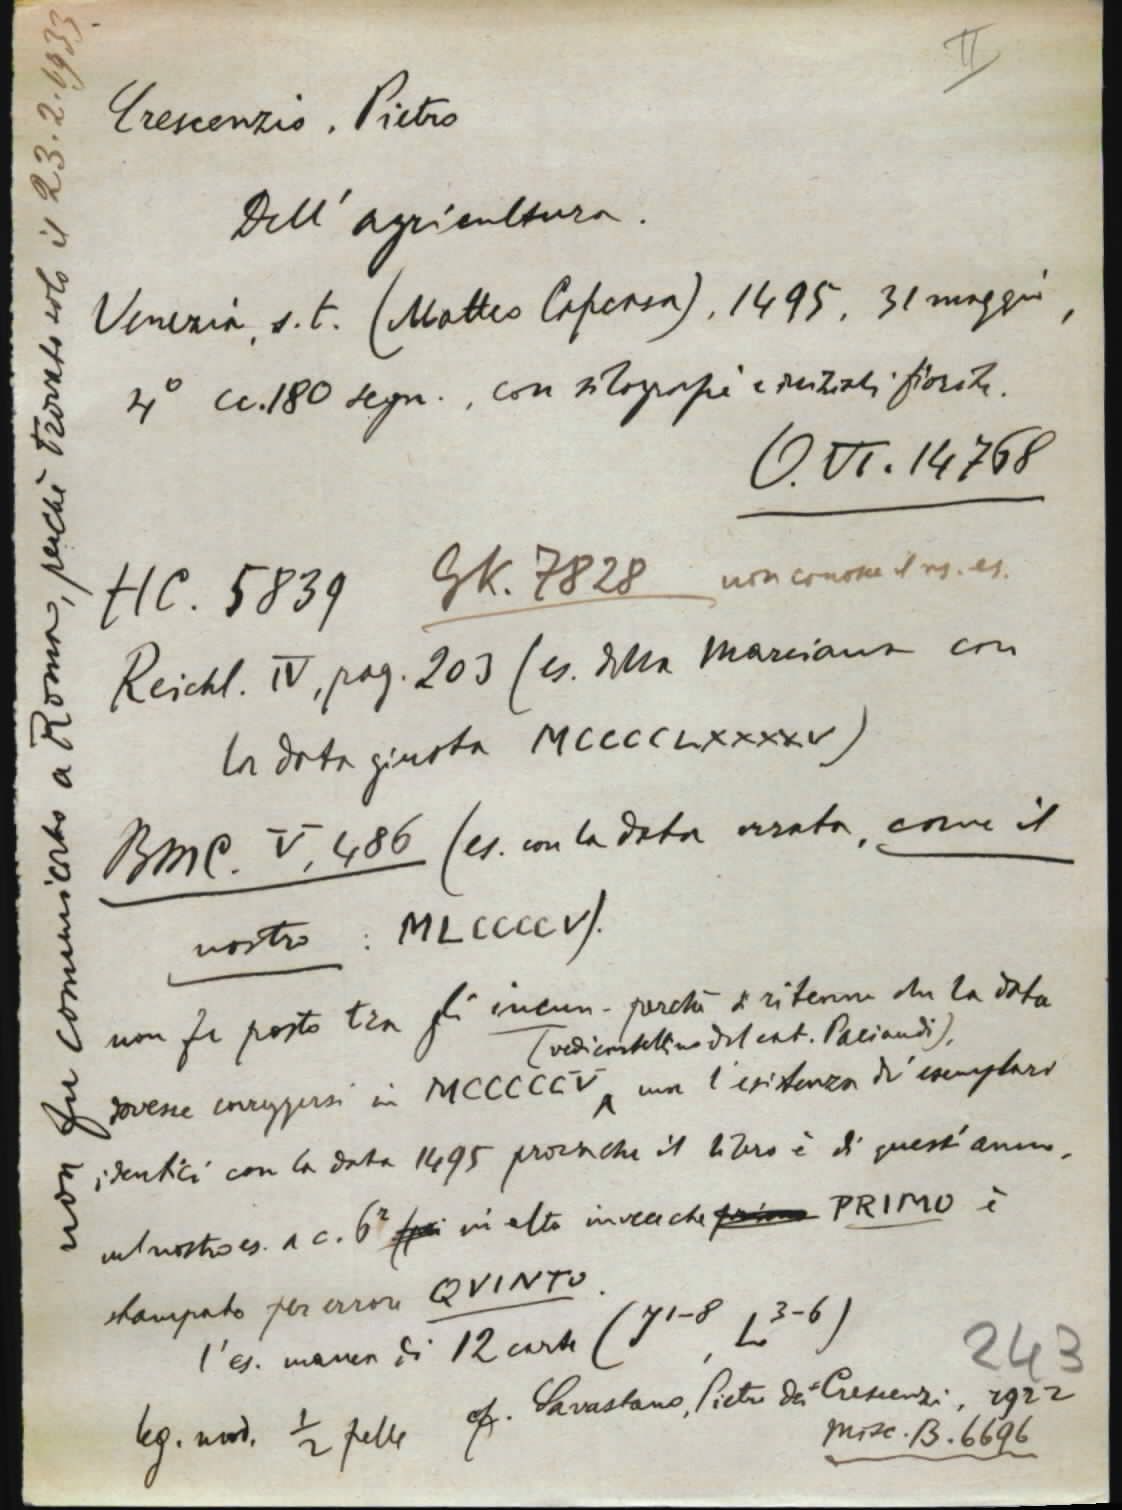 II
Crescenzio, Pietro
Dell'agricultura.
Venezia, s.t. (Matteo Capcasa), 1495, 31 maggio,
4° cc. 180 segn., con silografie e iniziali fiorite.
O.VI.14768
HC. 5839 GK. 7828 non conosce il ns. es.
Reichl. IV, pag. 203 (es. della Marciana con
la data giusta MCCCCLXXXXV)
BMC. V, 486 (es. con la data errata, come il
nostro : MLCCCCV).
non fu posto tra gli incun. perché si ritenne che la data
(vedi cartellino del cat. Paciaudi),
dovesse correggersi in MCCCCCV, ma l'esistenza di esemplari
identici con la data 1495 prova che il libro è di quest'anno.
nel nostro es. a c. 6ª in alto invece che primo PRIMO è
stampato per errore QVINTO.
l'es. manca di 12 carte (y1-8, L3-6)
243
leg. mod. 1/2 pelle cfr. Savastano, Pietro dei Crescenzi, 1922
Misc. B. 6696
non fu comunicato a Roma, perchè trovato solo il 23.2.1933